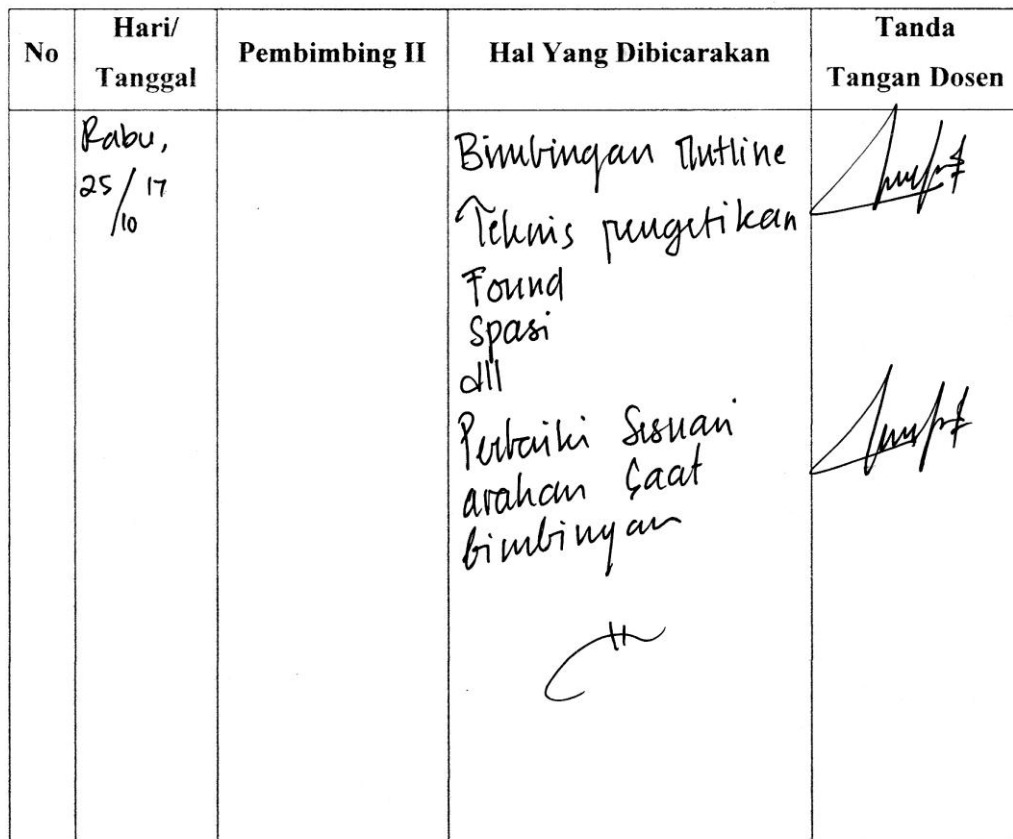 No
Hari/
Tanggal
Pembimbing II
Hal Yang Dibicarakan
Tanda
Tangan Dosen
Rabu,
25/10 17
Bimbingan Outline
Teknis pengetikan
Found
Spasi
dll
Perbaiki Sesuai
arahan Saat
bimbingan